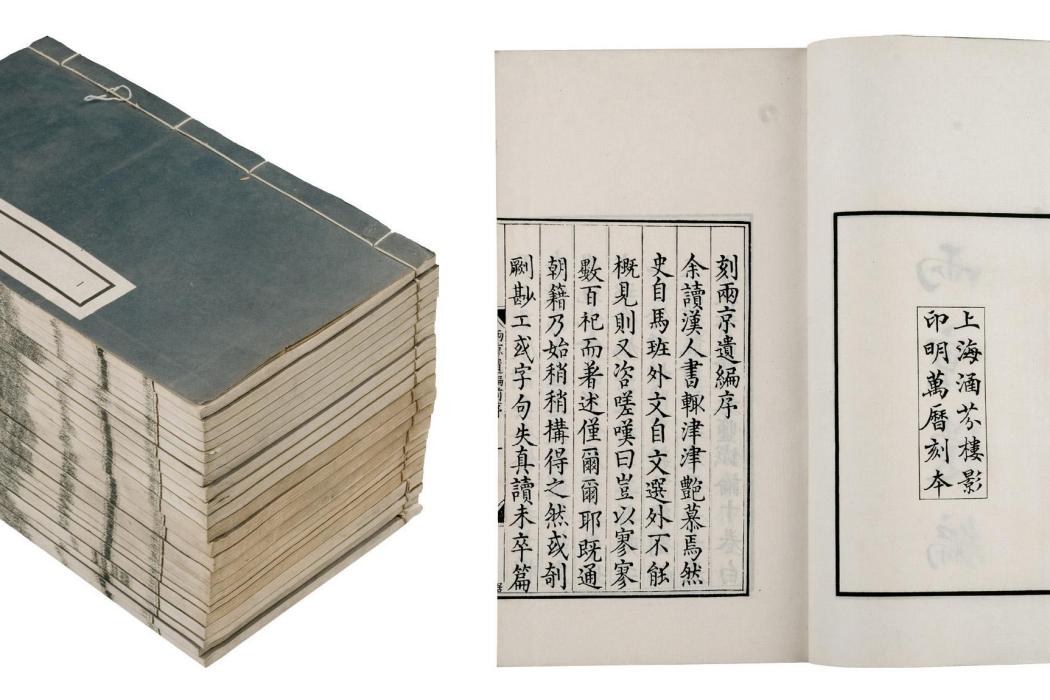 上海涵芬樓影
印明萬曆刻本
刻兩京遺編序
余讀漢人書輙津津艷慕焉然
史自馬班外文自文選外不能
概見則又咨嗟嘆曰豈以寥寥
數百祀而著述僅爾爾耶既通
朝籍乃始稍稍構得之然或剞
劂尠工或字句失真讀未卒篇